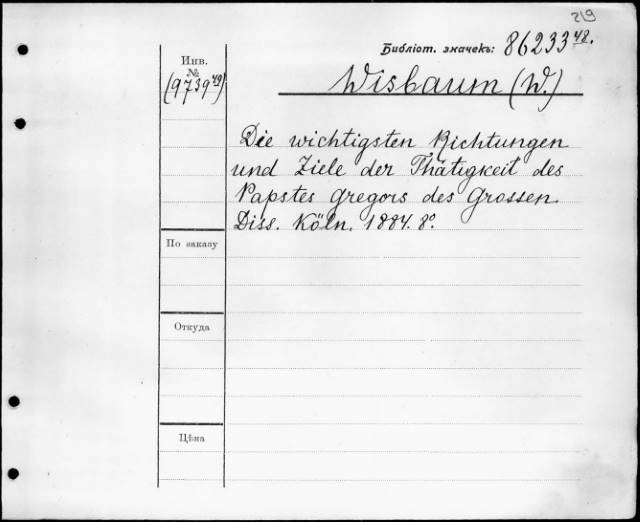 219
Библіот. значекъ: 86233⁴⁸.
Инв.
№
(9739⁴⁹)
Wisbaum (W.)
Die wichtigsten Richtungen
und Ziele der Thätigkeit des
Papstes Gregors des Grossen.
Diss. Köln. 1884. 8°.
По заказу
Откуда
Цѣна